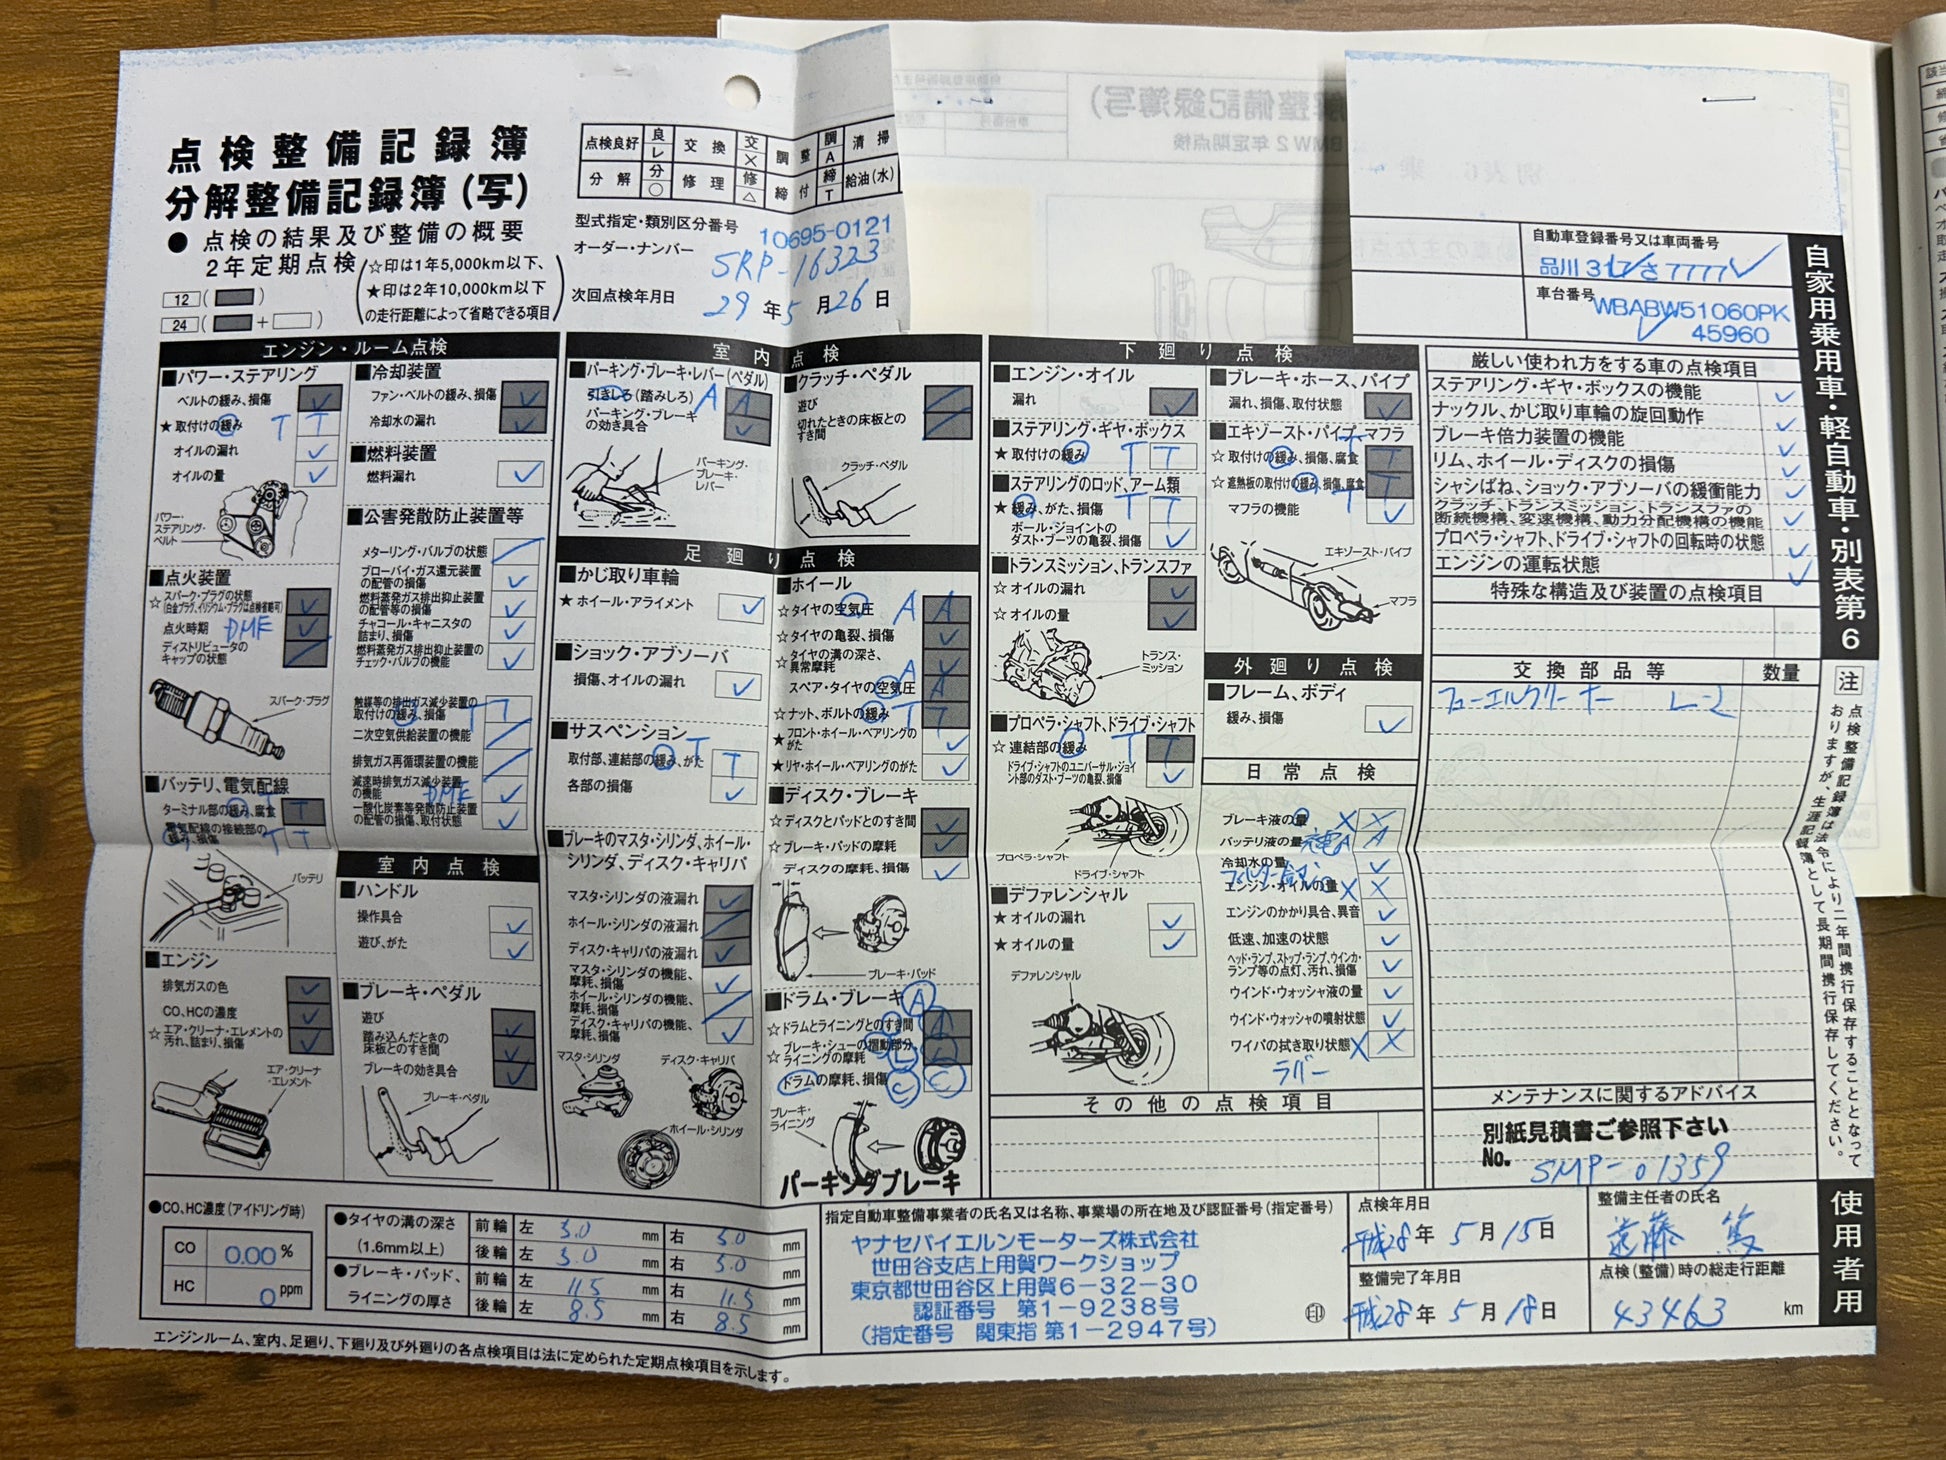 点検整備記録簿
分解整備記録簿(写)
● 点検の結果及び整備の概要
2年定期点検
☆印は1年5,000km以下、
★印は2年10,000km以下
の走行距離によって省略できる項目
12 ( )
24 ( + )
点検良好 良 レ 交換 交 × 調整 調 A 清掃
分解 分 ○ 修理 修 △ 締付 締 T 給油(水)
型式指定・類別区分番号 10695-0121
オーダー・ナンバー SRP-16323
次回点検年月日 29年5月26日
自動車登録番号又は車両番号
品川 317 さ 7777
車台番号 WBABW51060PK
45960
自家用乗用車・軽自動車・別表第6
エンジン・ルーム点検
■パワー・ステアリング
ベルトの緩み、損傷
★取付けの緩み T T
オイルの漏れ
オイルの量
パワー・
ステアリング・
ベルト
■点火装置
☆スパーク・プラグの状態
(白金プラグ、イリジウム・プラグは点検省略可)
点火時期 DME
ディストリビュータの
キャップの状態
スパーク・プラグ
■バッテリ、電気配線
ターミナル部の緩み、腐食 T
電気配線の接続部の
緩み、損傷 T T
バッテリ
■エンジン
排気ガスの色
CO、HCの濃度
☆エア・クリーナ・エレメントの
汚れ、詰まり、損傷
エア・クリーナ
・エレメント
■冷却装置
ファン・ベルトの緩み、損傷
冷却水の漏れ
■燃料装置
燃料漏れ
■公害発散防止装置等
メターリング・バルブの状態
ブローバイ・ガス還元装置
の配管の損傷
燃料蒸発ガス排出抑止装置
の配管等の損傷
チャコール・キャニスタの
詰まり、損傷
燃料蒸発ガス排出抑止装置の
チェック・バルブの機能
触媒等の排出ガス減少装置の
取付けの緩み、損傷 T T
二次空気供給装置の機能
排気ガス再循環装置の機能
減速時排気ガス減少装置
の機能 DME
一酸化炭素等発散防止装置
の配管の損傷、取付状態
室内点検
■ハンドル
操作具合
遊び、がた
■ブレーキ・ペダル
遊び
踏み込んだときの
床板とのすき間
ブレーキの効き具合
ブレーキ・ペダル
室内点検
■パーキング・ブレーキ・レバー(ペダル)
引きしろ(踏みしろ) A A
パーキング・ブレーキ
の効き具合
パーキング・
ブレーキ・
レバー
■クラッチ・ペダル
遊び
切れたときの床板との
すき間
クラッチ・ペダル
足廻り点検
■かじ取り車輪
★ホイール・アライメント
■ショック・アブソーバ
損傷、オイルの漏れ
■サスペンション
取付部、連結部の緩み、がた T T
各部の損傷
■ブレーキのマスタ・シリンダ、ホイール・
シリンダ、ディスク・キャリパ
マスタ・シリンダの液漏れ
ホイール・シリンダの液漏れ
ディスク・キャリパの液漏れ
マスタ・シリンダの機能、
摩耗、損傷
ホイール・シリンダの機能、
摩耗、損傷
ディスク・キャリパの機能、
摩耗、損傷
マスタ・シリンダ
ディスク・キャリパ
ホイール・シリンダ
■ホイール
☆タイヤの空気圧 A A
☆タイヤの亀裂、損傷
☆タイヤの溝の深さ、
異常摩耗
スペア・タイヤの空気圧 A A
☆ナット、ボルトの緩み T T
★フロント・ホイール・ベアリングの
がた
★リヤ・ホイール・ベアリングのがた
■ディスク・ブレーキ
☆ディスクとパッドとのすき間
☆ブレーキ・パッドの摩耗
ディスクの摩耗、損傷
ブレーキ・パッド
■ドラム・ブレーキ A
☆ドラムとライニングとのすき間
☆ブレーキ・シューの摺動部分、
ライニングの摩耗
ドラムの摩耗、損傷
ブレーキ・
ライニング
パーキングブレーキ
下廻り点検
■エンジン・オイル
漏れ
■ステアリング・ギヤ・ボックス
★取付けの緩み T T
■ステアリングのロッド、アーム類
★緩み、がた、損傷 T T
ボール・ジョイントの
ダスト・ブーツの亀裂、損傷
■トランスミッション、トランスファ
☆オイルの漏れ
☆オイルの量
トランス・
ミッション
■プロペラ・シャフト、ドライブ・シャフト
☆連結部の緩み T T
ドライブ・シャフトのユニバーサル・ジョイ
ント部のダスト・ブーツの亀裂、損傷
プロペラ・シャフト
ドライブ・シャフト
■デファレンシャル
★オイルの漏れ
★オイルの量
デファレンシャル
■ブレーキ・ホース、パイプ
漏れ、損傷、取付状態
■エキゾースト・パイプ、マフラ
☆取付けの緩み、損傷、腐食 T T
☆遮熱板の取付けの緩み、損傷、腐食 T T
マフラの機能
エキゾースト・パイプ
マフラ
外廻り点検
■フレーム、ボディ
緩み、損傷
日常点検
ブレーキ液の量 X X
バッテリ液の量 充電 A A
冷却水の量
エンジン・オイルの量 X X
エンジンのかかり具合、異音
低速、加速の状態
ヘッド・ランプ、ストップ・ランプ、ウインカ・
ランプ等の点灯、汚れ、損傷
ウインド・ウォッシャ液の量
ウインド・ウォッシャの噴射状態
ワイパの拭き取り状態 X X
ラバー
その他の点検項目
厳しい使われ方をする車の点検項目
ステアリング・ギヤ・ボックスの機能
ナックル、かじ取り車輪の旋回動作
ブレーキ倍力装置の機能
リム、ホイール・ディスクの損傷
シャシばね、ショック・アブソーバの緩衝能力
クラッチ、トランスミッション、トランスファの
断続機構、変速機構、動力分配機構の機能
プロペラ・シャフト、ドライブ・シャフトの回転時の状態
エンジンの運転状態
特殊な構造及び装置の点検項目
交換部品等 数量
フューエルクリーナー L-2
メンテナンスに関するアドバイス
別紙見積書ご参照下さい
No. SMP-01359
注 点検整備記録簿は法令により二年間携行保存することとなって
おりますが、生涯記録簿として長期間携行保存してください。
使用者用
●CO、HC濃度(アイドリング時)
CO 0.00 %
HC 0 ppm
●タイヤの溝の深さ
(1.6mm以上)
前輪 左 5.0 mm 右 5.0 mm
後輪 左 5.0 mm 右 5.0 mm
●ブレーキ・パッド、
ライニングの厚さ
前輪 左 11.5 mm 右 11.5 mm
後輪 左 8.5 mm 右 8.5 mm
指定自動車整備事業者の氏名又は名称、事業場の所在地及び認証番号(指定番号)
ヤナセバイエルンモーターズ株式会社
世田谷支店上用賀ワークショップ
東京都世田谷区上用賀6-32-30
認証番号 第1-9238号
(指定番号 関東指 第1-2947号)
印
点検年月日
平成28年5月15日
整備完了年月日
平成28年5月18日
整備主任者の氏名
遠藤 篤
点検(整備)時の総走行距離
43463 km
エンジンルーム、室内、足廻り、下廻り及び外廻りの各点検項目は法に定められた定期点検項目を示します。